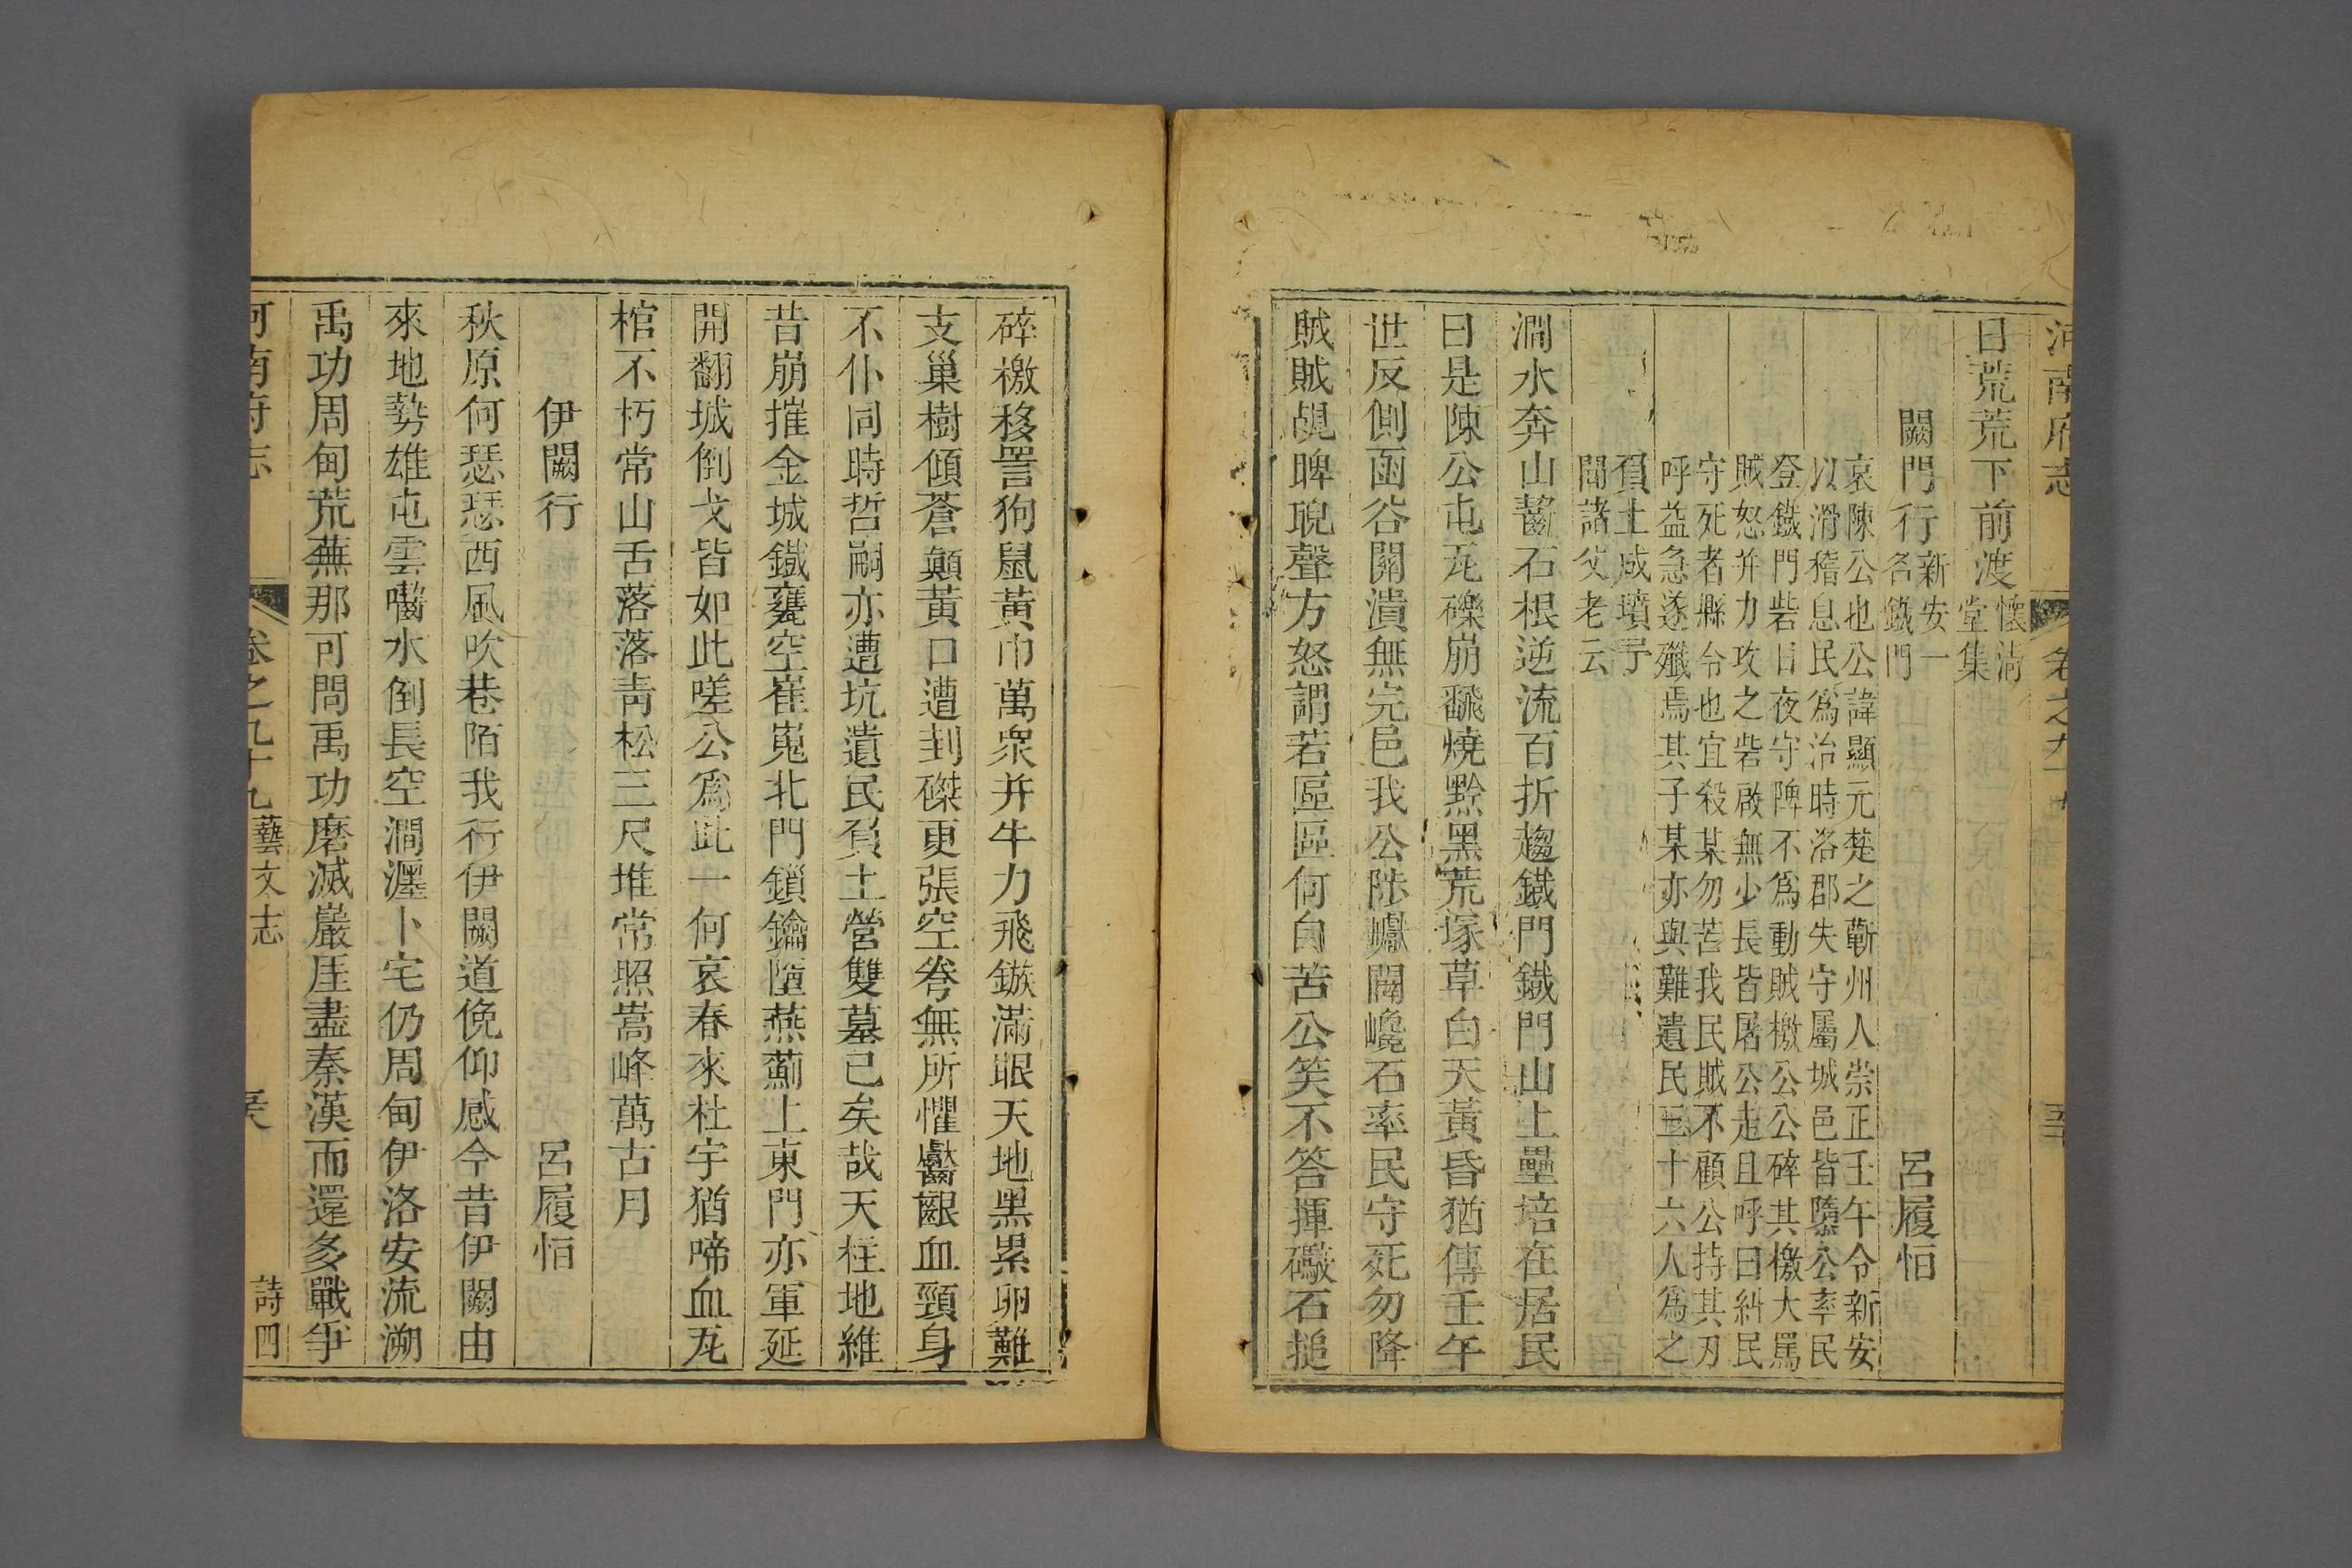 河南府志 卷之九十
日荒荒下前渡懷淸堂集
闕門行新安一名鐵門 呂履恒
哀陳公也公諱顯元楚之蘄州人崇正壬午令新安
以滑稽息民爲治時洛郡失守屬城邑皆隳公率民
登鐵門砦日夜守陴不爲動賊檄公公碎其檄大罵
賊怒并力攻之砦啟無少長皆屠公走且呼曰糾民
守死者縣令也宜殺某勿苦我民賊不顧公持其刃
呼益急遂殲焉其子某亦與難遺民三十六人爲之
負土成墳予
聞諸父老云
澗水奔山齧石根逆流百折趨鐵門鐵門山上壘培在居民
曰是陳公屯瓦礫崩飜燒黔黑荒塚草白天黃昏猶傳壬午
世反側函谷關潰無完邑我公陟巘闢巉石率民守死勿降
賊賊覘睥睨聲方怒謂若區區何自苦公笑不答揮礮石搥
碎檄移詈狗鼠黃巾萬衆并牛力飛鏃滿眼天地黑累卵難
支巢樹傾蒼顚黃口遭刲磔更張空弮無所懼齾齦血頸身
不仆同時哲嗣亦遭坑遺民負土營雙墓已矣哉天柱地維
昔崩摧金城鐵甕空崔嵬北門鎖鑰墮燕薊上東門亦軍延
開翻城倒戈皆如此嗟公爲此一何哀春來杜宇猶啼血瓦
棺不朽常山舌落落靑松三尺堆常照嵩峰萬古月
伊闕行 呂履恒
秋原何瑟瑟西風吹巷陌我行伊闕道俛仰感今昔伊闕由
來地勢雄屯雲囓水倒長空澗瀍卜宅仍周甸伊洛安流溯
禹功周甸荒蕪那可問禹功磨滅巖厓盡秦漢而還多戰爭
河南府志 卷之九十九藝文志 詩四